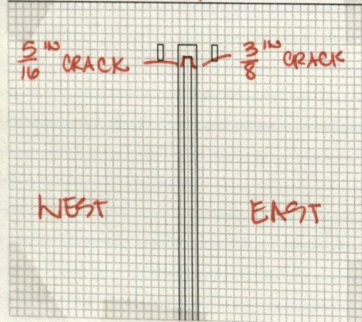 5/16 IN CRACK
3/8 IN CRACK
WEST
EAST